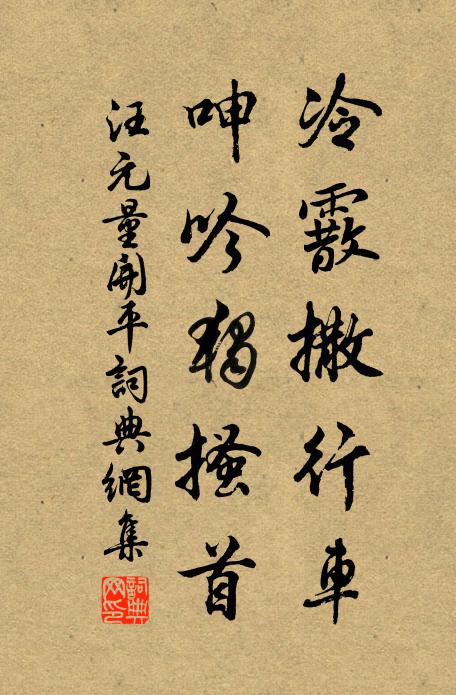 冷霰撒行車
呻吟獨搔首
汪元量開平詞典網集
詞典网印